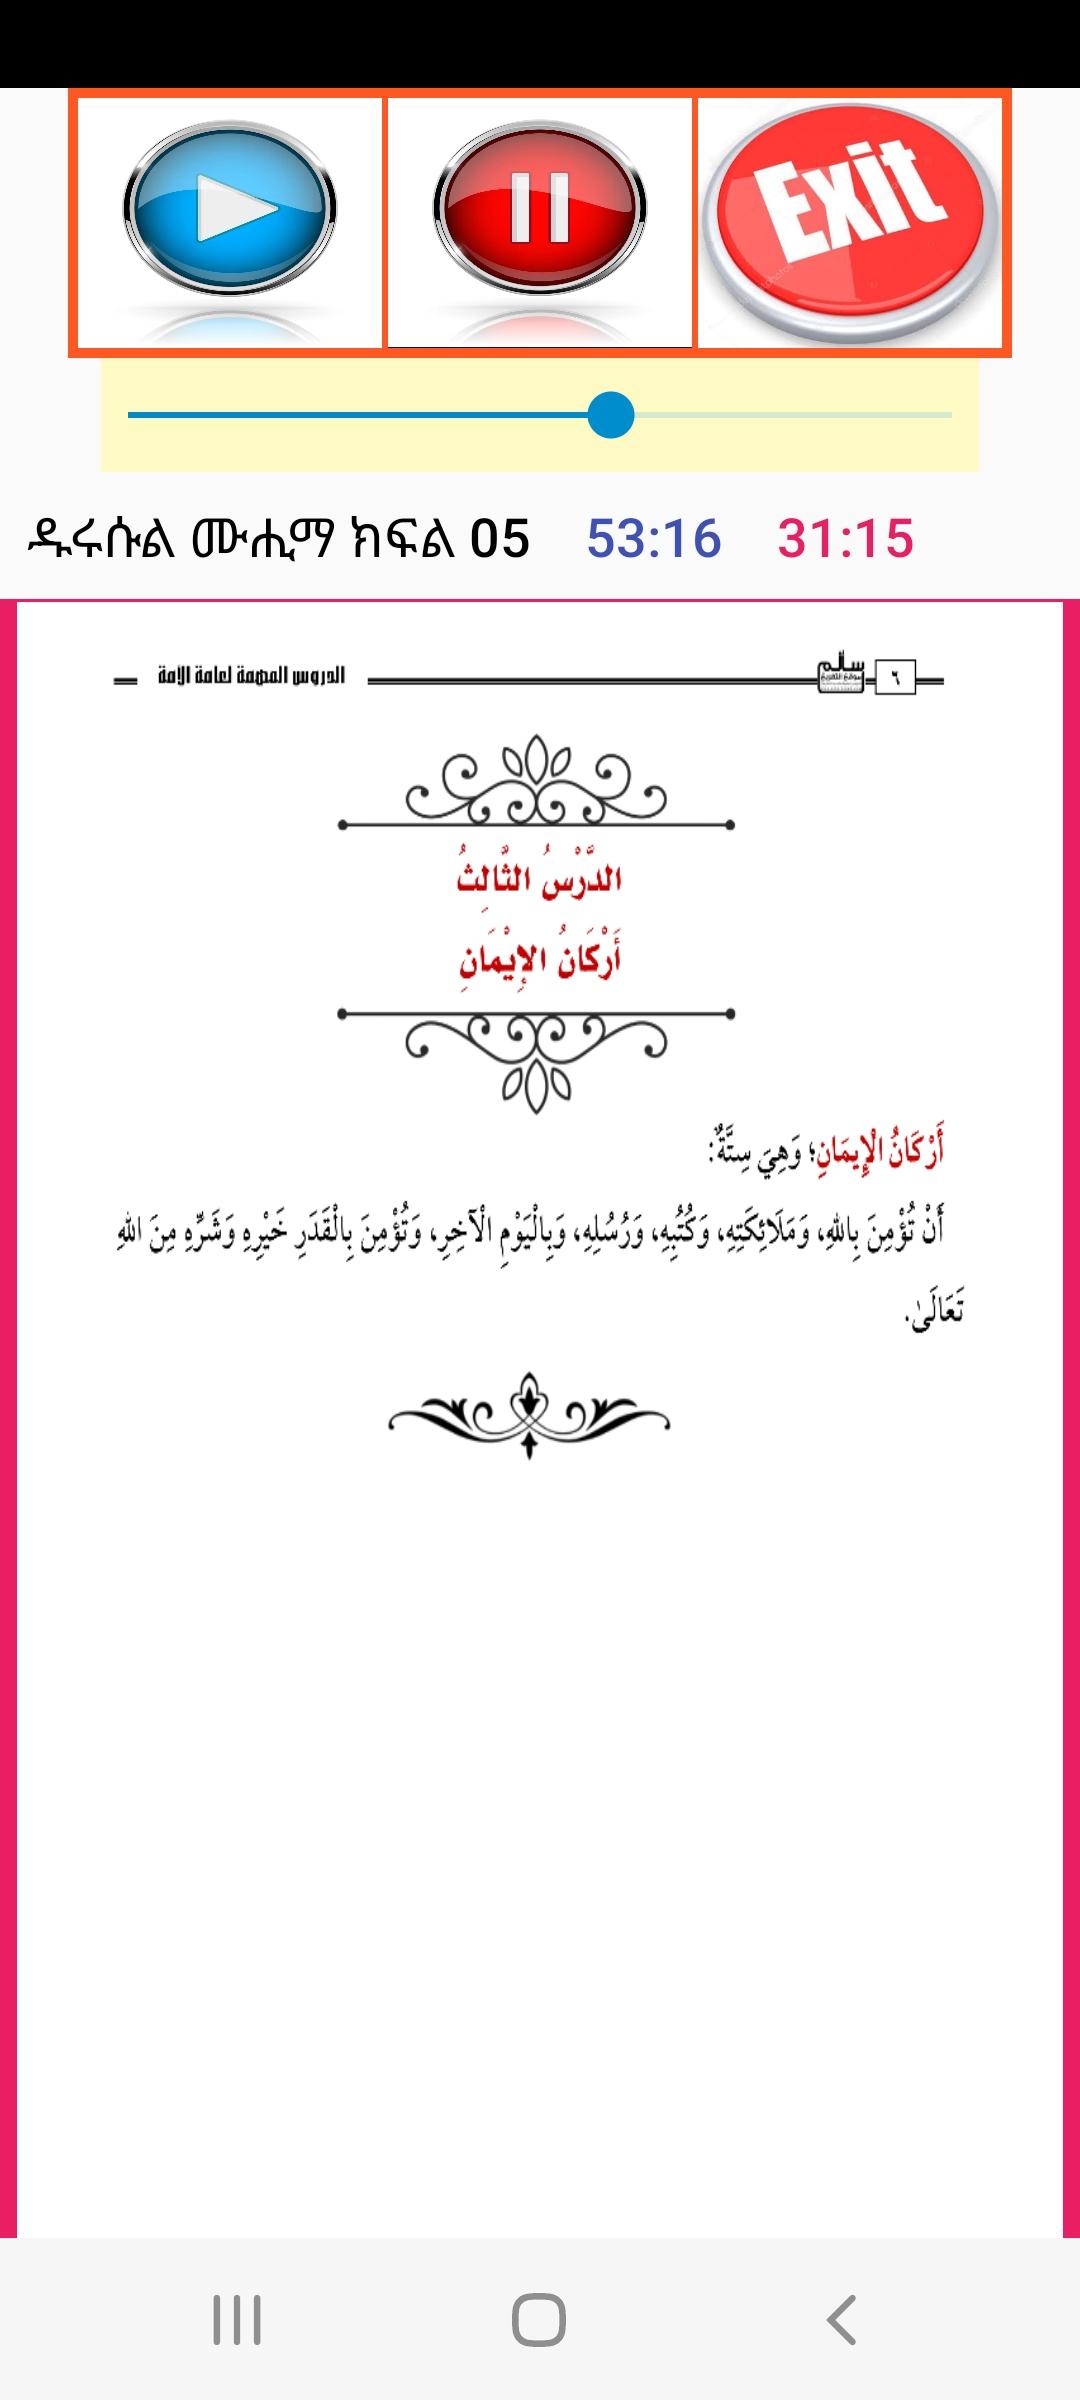 Exit
ዱሩሱል ሙሒማ ክፍል 05 53:16 31:15
الدروس المهمة لعامة الأمة سالم موقع التفريغ ٦
الدَّرْسُ الثَّالِثُ
أَرْكَانُ الإِيْمَانِ
أَرْكَانُ الْإِيمَانِ؛ وَهِيَ سِتَّةٌ:
أَنْ تُؤْمِنَ بِاللهِ، وَمَلَائِكَتِهِ، وَكُتُبِهِ، وَرُسُلِهِ، وَبِالْيَوْمِ الْآخِرِ، وَتُؤْمِنَ بِالْقَدَرِ خَيْرِهِ وَشَرِّهِ مِنَ اللهِ
تَعَالَىٰ.